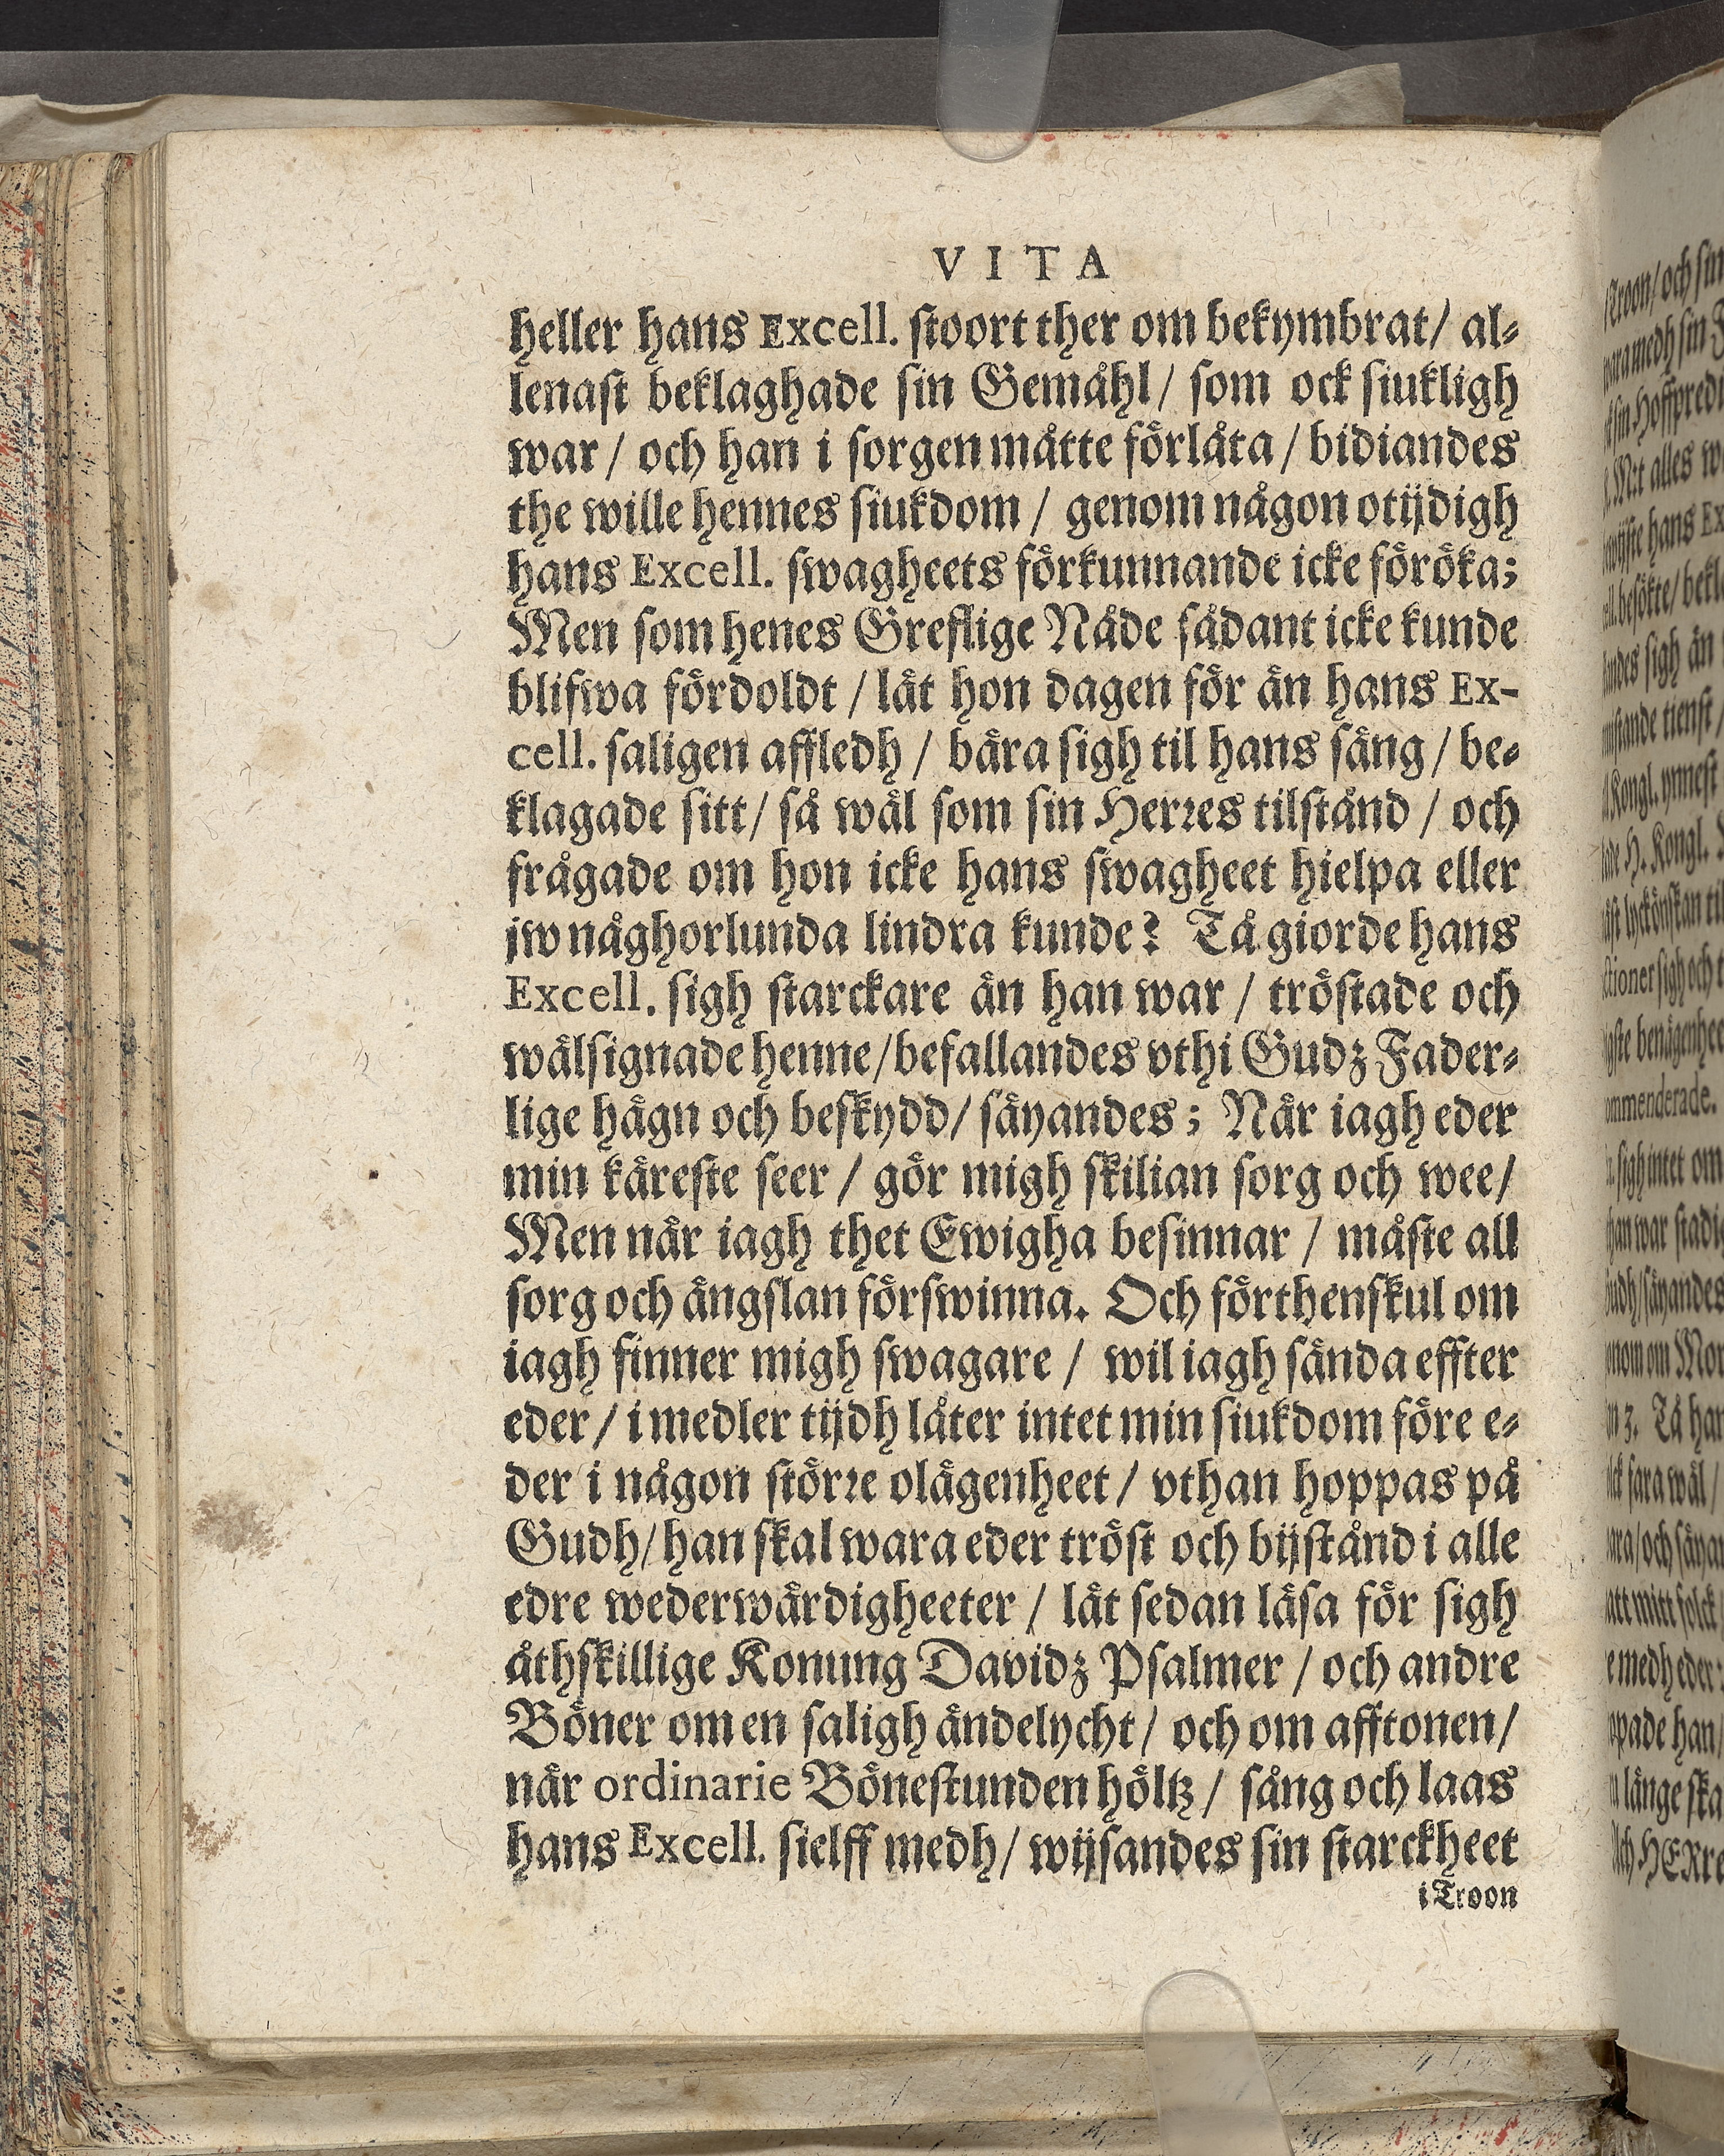 VITA
heller hans Excell. stoort ther om bekymbrat/ al-
lenast beklaghade sin Gemåhl/ som ock siukligh
war/ och han i sorgen måtte förlåta/ bidiandes
the wille hennes siukdom/ genom någon otijdigh
hans Excell. swagheets förkunnande icke föröka;
Men som henes Greflige Nåde sådant icke kunde
blifwa fördoldt/ låt hon dagen för än hans Ex-
cell. saligen affledh/ bära sigh til hans säng/ be-
klagade sitt/ så wäl som sin Herres tilstånd/ och
frågade om hon icke hans swagheet hielpa eller
jw någhorlunda lindra kunde? Tå giorde hans
Excell. sigh starckare än han war/ tröstade och
wälsignade henne/ befallandes vthi Gudz Fader-
lige hägn och beskydd/ säyandes; När iagh eder
min käreste seer/ gör migh skilian sorg och wee/
Men när iagh thet Ewigha besinnar/ måste all
sorg och ängslan förswinna. Och förthenskul om
iagh finner migh swagare/ wil iagh sända effter
eder/ i medler tijdh låter intet min siukdom före e-
der i någon större olägenheet/ vthan hoppas på
Gudh/ han skal wara eder tröst och bijstånd i alle
edre wederwärdigheeter/ lät sedan läsa för sigh
åthskillige Konung Davidz Psalmer/ och andre
Böner om en saligh ändelycht/ och om afftonen/
när ordinarie Bönestunden höltz/ sång och laas
hans Excell. sielff medh/ wijsandes sin starckheet
i Troon